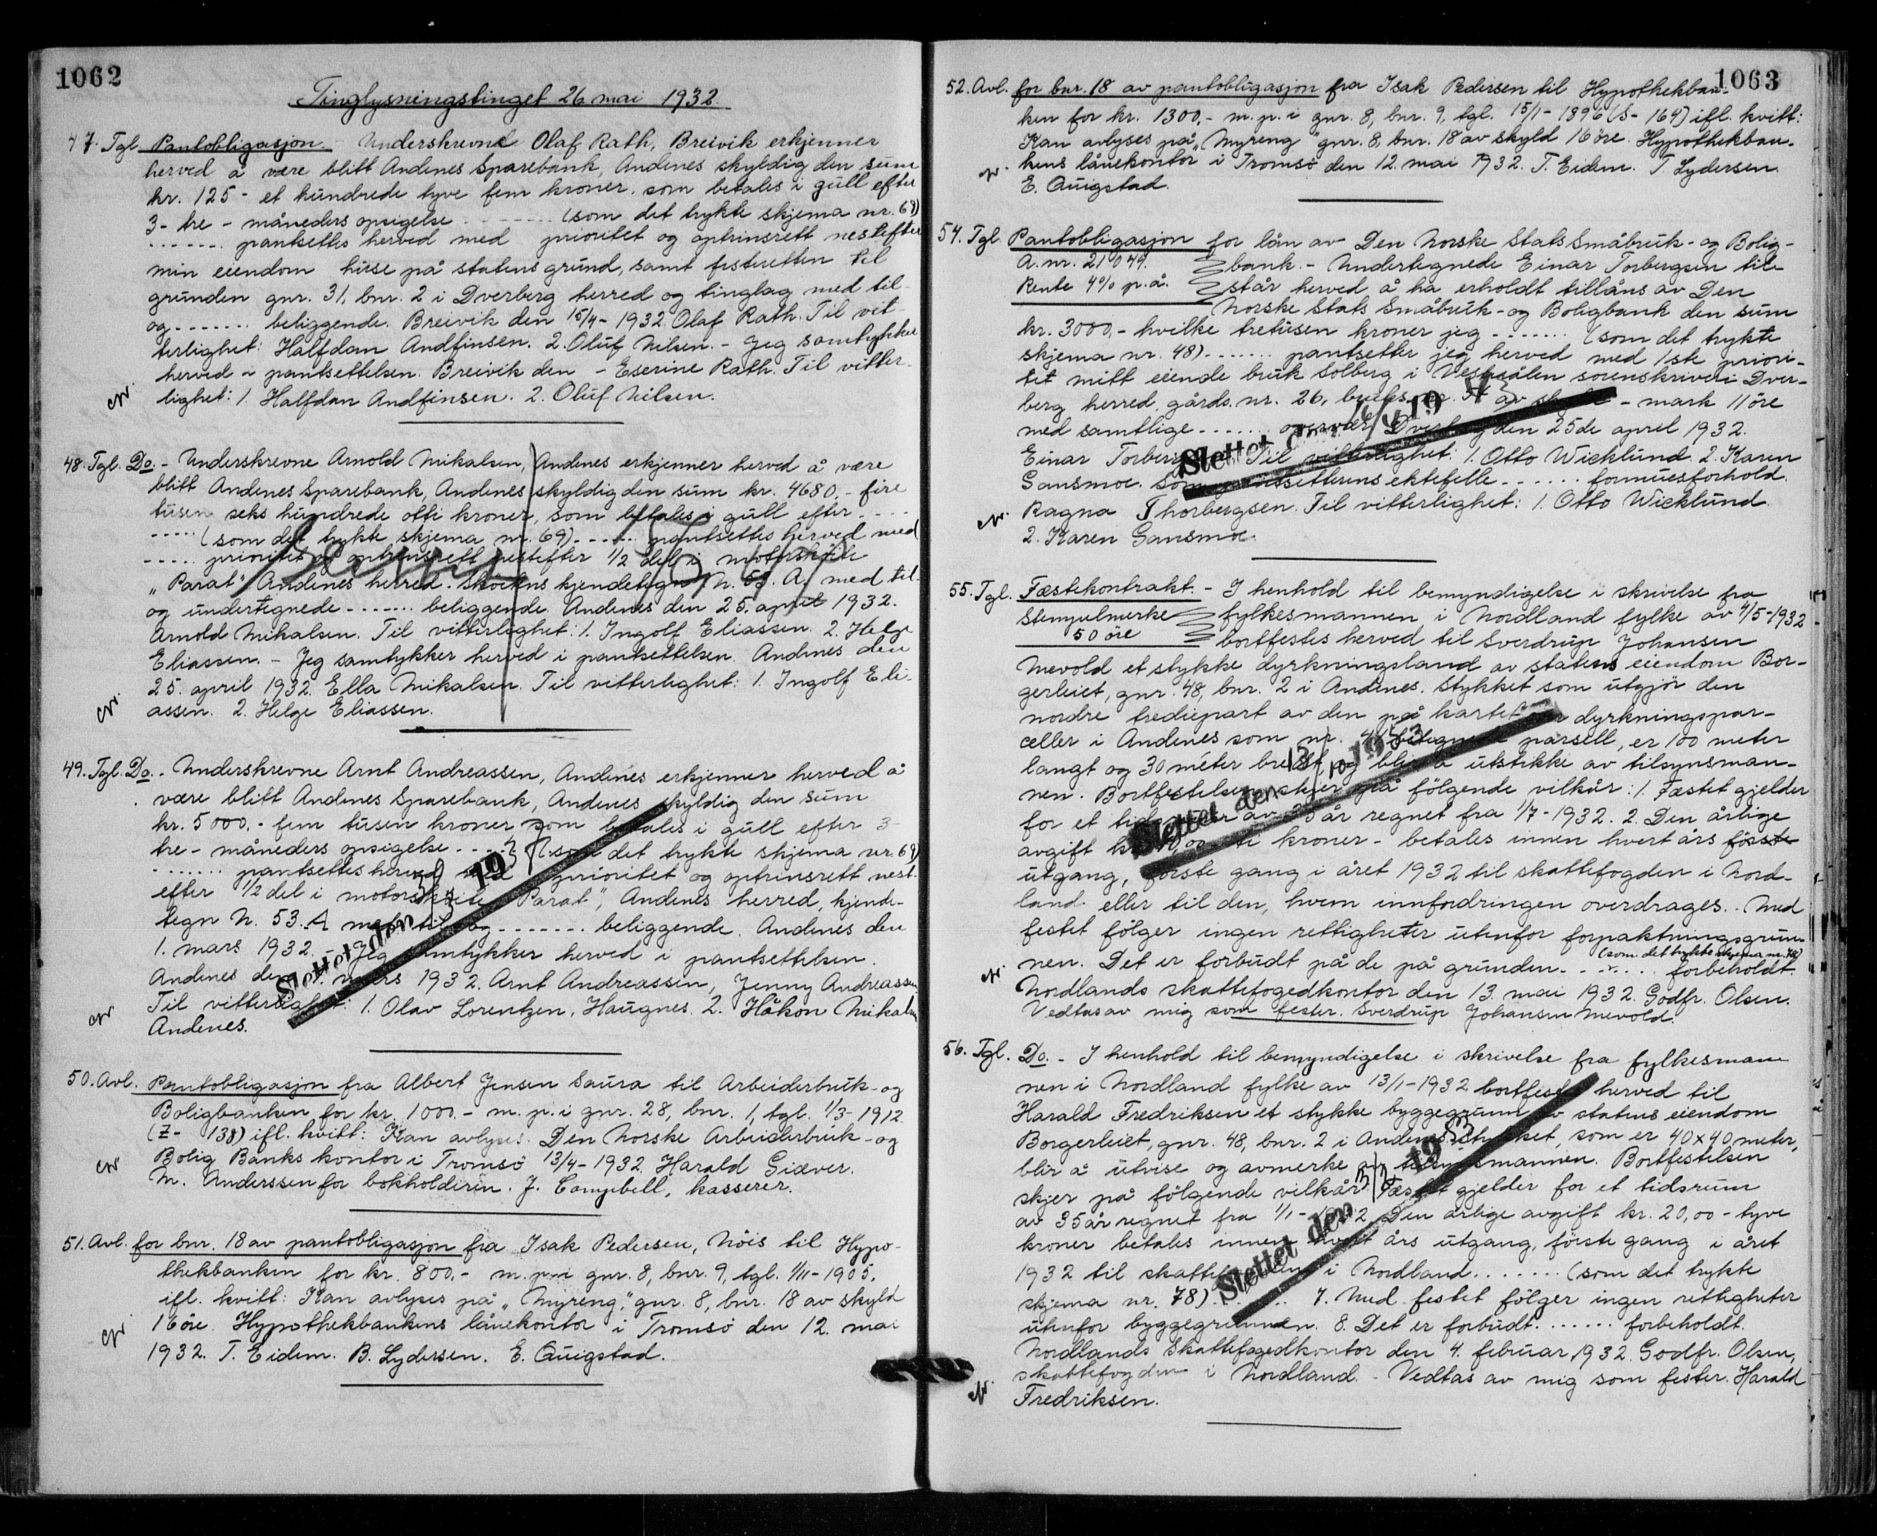 1062
Tinglysningstinget 26 mai 1932
47. Tgl. Pantobligasjon. Underskrevne Olaf Rath, Breivik erkjenner
herved å være blitt Andenes Sparebank, Andenes skyldig den sum
kr. 125 - et hundrede tyve fem kroner, som betales i gull efter
3 - tre - måneders opsigelse ....... (som det trykte skjema nr. 69)
....... pantsettes herved med prioritet og optrinsrett nestefter
min eiendom huse på statens grund, samt festeretten til
grunden gnr. 31, bnr. 2 i Dverberg herred og tinglag med til-
og ....... beliggende. Breivik den 15/4 - 1932 Olaf Rath. Til vit-
terlighet: Halfdan Andfinsen. 2. Oluf Nilsen. - Jeg samtykker
herved i pantsettelsen. Breivik den - Eserine Rath. Til vitter-
lighet: 1. Halfdan Andfinsen. 2. Oluf Nilsen.
48. Tgl. Do. - Underskrevne Arnold Mikalsen, Andenes erkjenner herved å være
blitt Andenes Sparebank, Andenes skyldig den sum kr. 4680,- fire
tusen seks hundrede otti kroner, som betales i gull efter ....
..... (som det trykte skjema nr. 69) ..... pantsettes herved med
..... prioritet og optrinsrett nestefter 1/2 del i motorskøite
"Parat" Andenes herred. Skøitens kjendetegn N. 53. A. med til-
og undertegnede ....... beliggende. Andenes den 25. april 1932.
Arnold Mikalsen. Til vitterlighet: 1. Ingolf Eliassen. 2. Helge
Eliassen. - Jeg samtykker herved i pantsettelsen. Andenes den
25. april 1932. Ella Mikalsen. Til vitterlighet: 1. Ingolf Eli-
assen. 2. Helge Eliassen.
49. Tgl. Do. - Underskrevne Arnt Andreassen, Andenes erkjenner herved å
være blitt Andenes Sparebank, Andenes skyldig den sum
kr. 5000,- fem tusen kroner som betales i gull efter 3-
tre - måneders opsigelse ..... (som det trykte skjema nr. 69)
....... pantsettes herved med prioritet og optrinsrett nest-
efter 1/2 del i motorskøite "Parat", Andenes herred, kjende-
tegn N. 53. A med til og ....... beliggende. Andenes den
1. mars 1932. - Jeg samtykker herved i pantsettelsen.
Andenes den 1. mars 1932. Arnt Andreassen, Jenny Andreassen
Til vitterlighet: 1. Olav Lorentzen, Haugnes. 2. Håkon Mikalsen
Andenes.
Slettet den 19
50. Avl. Pantobligasjon fra Albert Jensen Saura til Arbeiderbruk- og
Boligbanken for kr. 1000,- m. p. i gnr. 28, bnr. 1, tgl. 1/3 - 1912
(Z - 138) ifl. kvitt: Kan avlyses. Den Norske Arbeiderbruk- og
Bolig Banks kontor i Tromsø 13/4 - 1932. Harald Giæver.
M. Anderssen for bokholderen. J. Campbell, kasserer.
51. Avl. for bnr. 18 av pantobligasjon fra Isak Pedersen, Nöis til Hypo-
thekbanken for kr. 800,- m. p. i gnr. 8, bnr. 9, tgl. 1/11 - 1905,
ifl. kvitt: Kan avlyses på "Myreng", gnr. 8, bnr. 18 av skyld
16 øre. Hypothekbankens lånekontor i Tromsø den 12. mai
1932. T. Eidem. B. Lydersen. E. Quigstad.
1063
52. Avl. for bnr. 18 av pantobligasjon fra Isak Pedersen til Hypothekban-
ken for kr. 1300,- m. p. i gnr. 8, bnr. 9, tgl. 15/1 - 1896 (S - 164) ifl. kvitt:
Kan avlyses på "Myreng" gnr. 8, bnr. 18 av skyld 16 øre. Hypothekban-
kens lånekontor i Tromsø den 12. mai 1932. T. Eidem. T. Lydersen.
E. Quigstad.
54. Tgl. Pantobligasjon for lån av Den Norske Stats Småbruk- og Bolig-
A. nr. 21049. bank. - Undertegnede Einar Torbergsen til-
Rente 4% p. å. står herved å ha erholdt tillåns av Den
Norske Stats Småbruk- og Boligbank den sum
kr. 3000,- hvilke tretusen kroner jeg ....... (som det trykte
skjema nr. 48) ....... pantsetter jeg herved med 1ste priori-
tet mitt eiende bruk Solberg i Vesterålen sorenskriveri Dver-
berg herred, gårds. nr. 26, bruks nr. av skyld - mark 11 øre
med samtlige ....... den 25de april 1932.
Einar Torbergsen. Til vitterlighet: 1. Otto Wicklund. 2. Karen
Gansmoe. Som pantsetterens ektefelle ...... formuesforhold.
Ragna Thorbergsen. Til vitterlighet: 1. Otto Wicklund.
2. Karen Gansmoe.
Slettet den 19
55. Tgl. Fæstekontrakt. - I henhold til bemyndigelse i skrivelse fra
Stempelmerke fylkesmannen i Nordland fylke av 4/5 - 1932
50 øre bortfestes herved til Sverdrup Johansen
Mevold et stykke dyrkningsland av statens eiendom Bor-
gerleiet, gnr. 48, bnr. 2 i Andenes. Stykket som utgjør den
nordre trediepart av den på kartet over dyrkningspar-
celler i Andenes som nr. 4 betegnede parsell, er 100 meter
langt og 30 meter bredt og blir å utstikke av tilsynsman-
nen. Bortfestelsen skjer på følgende vilkår: 1. Fæstet gjelder
for et tidsrum av 35 år regnet fra 1/7 - 1932. 2. Den årlige
avgift kr. kroner - betales innen hvert års første
utgang, første gang i året 1932 til skattefogden i Nord-
land eller til den, hvem innfordringen overdrages. Med
festet følger ingen rettigheter utenfor forpaktningsgrun-
(som det trykte skjema nr. 78)
nen. Det er forbudt på de på grunden ....... forbeholdt.
Nordlands skattefogedkontor den 13. mai 1932. Godfr. Olsen.
Vedtas av mig som fester. Sverdrup Johansen Mevold.
Slettet den 13/10 1953
56. Tgl. Do. - I henhold til bemyndigelse i skrivelse fra fylkesman-
nen i Nordland fylke av 13/1 - 1932 bortfestes herved til
Harald Fredriksen et stykke byggegrunn av statens eiendom
Borgerleiet, gnr. 48, bnr. 2 i Andenes. Stykket, som er 40 x 40 meter,
blir å utvise og avmerke av tilsynsmannen. Bortfestelsen
skjer på følgende vilkår: Fæstet gjelder for et tidsrum
av 35 år regnet fra 1/1 - 1932. Den årlige avgift kr. 20,00 - tyve
kroner betales innen hvert års utgang, første gang i året
1932 til skattefogden i Nordland ....... (som det trykte
skjema nr. 78) ....... 7. Med festet følger ingen rettigheter
utenfor byggegrunnen. 8. Det er forbudt ....... forbeholdt.
Nordlands Skattefogedkontor den 4. februar 1932. Godfr. Olsen,
skattefogden i Nordland. - Vedtas av mig som fester. Harald
Fredriksen.
Slettet den 19